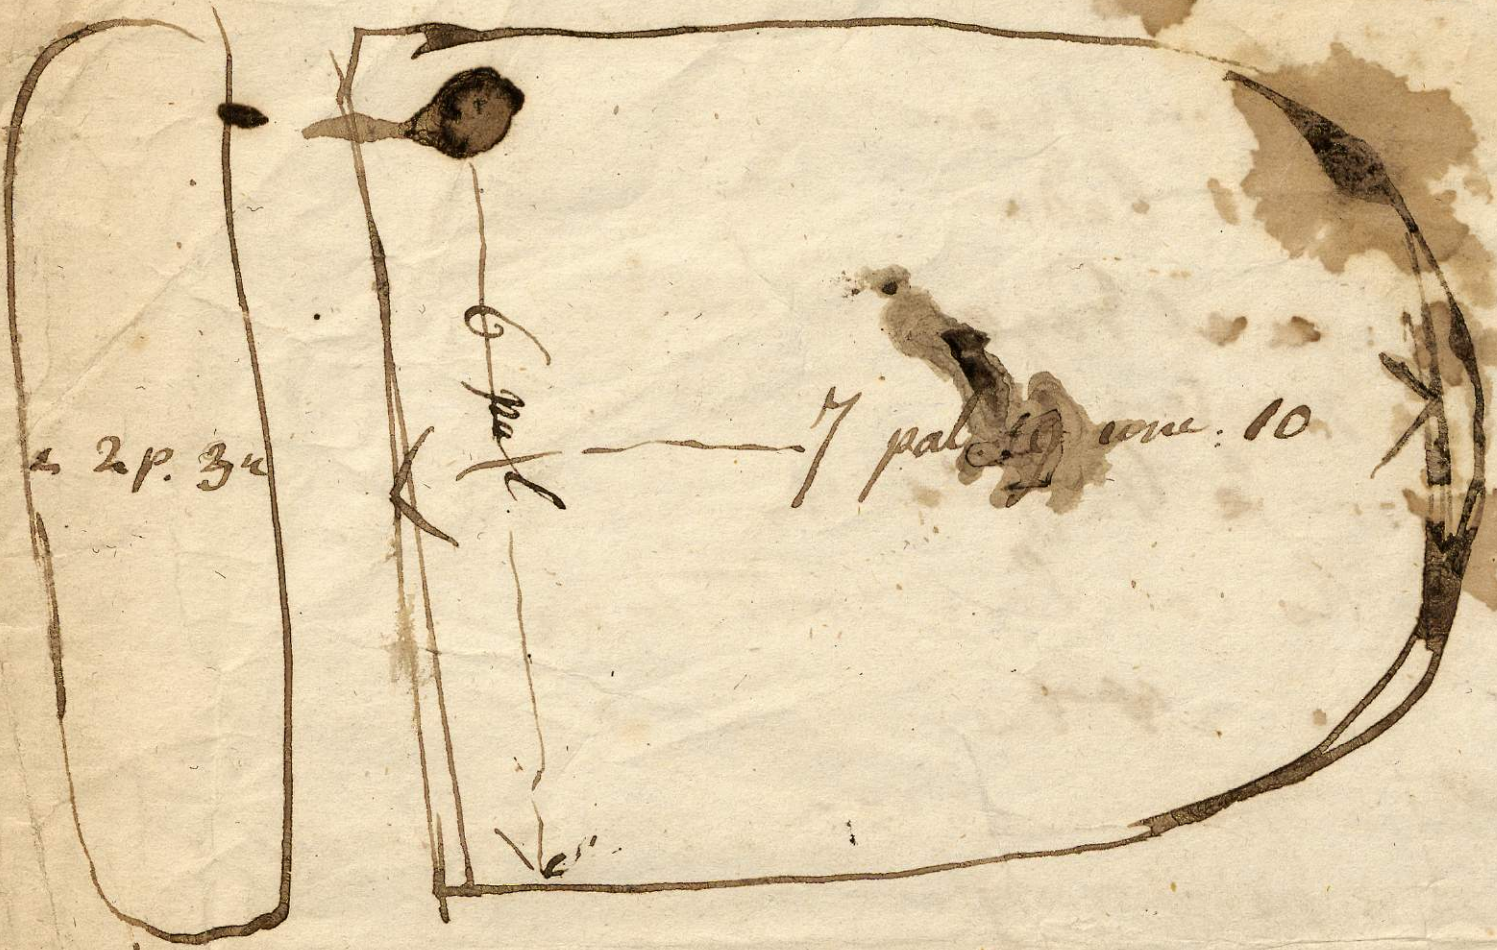 2 p. 3
6 pal
7 pal onc: 10